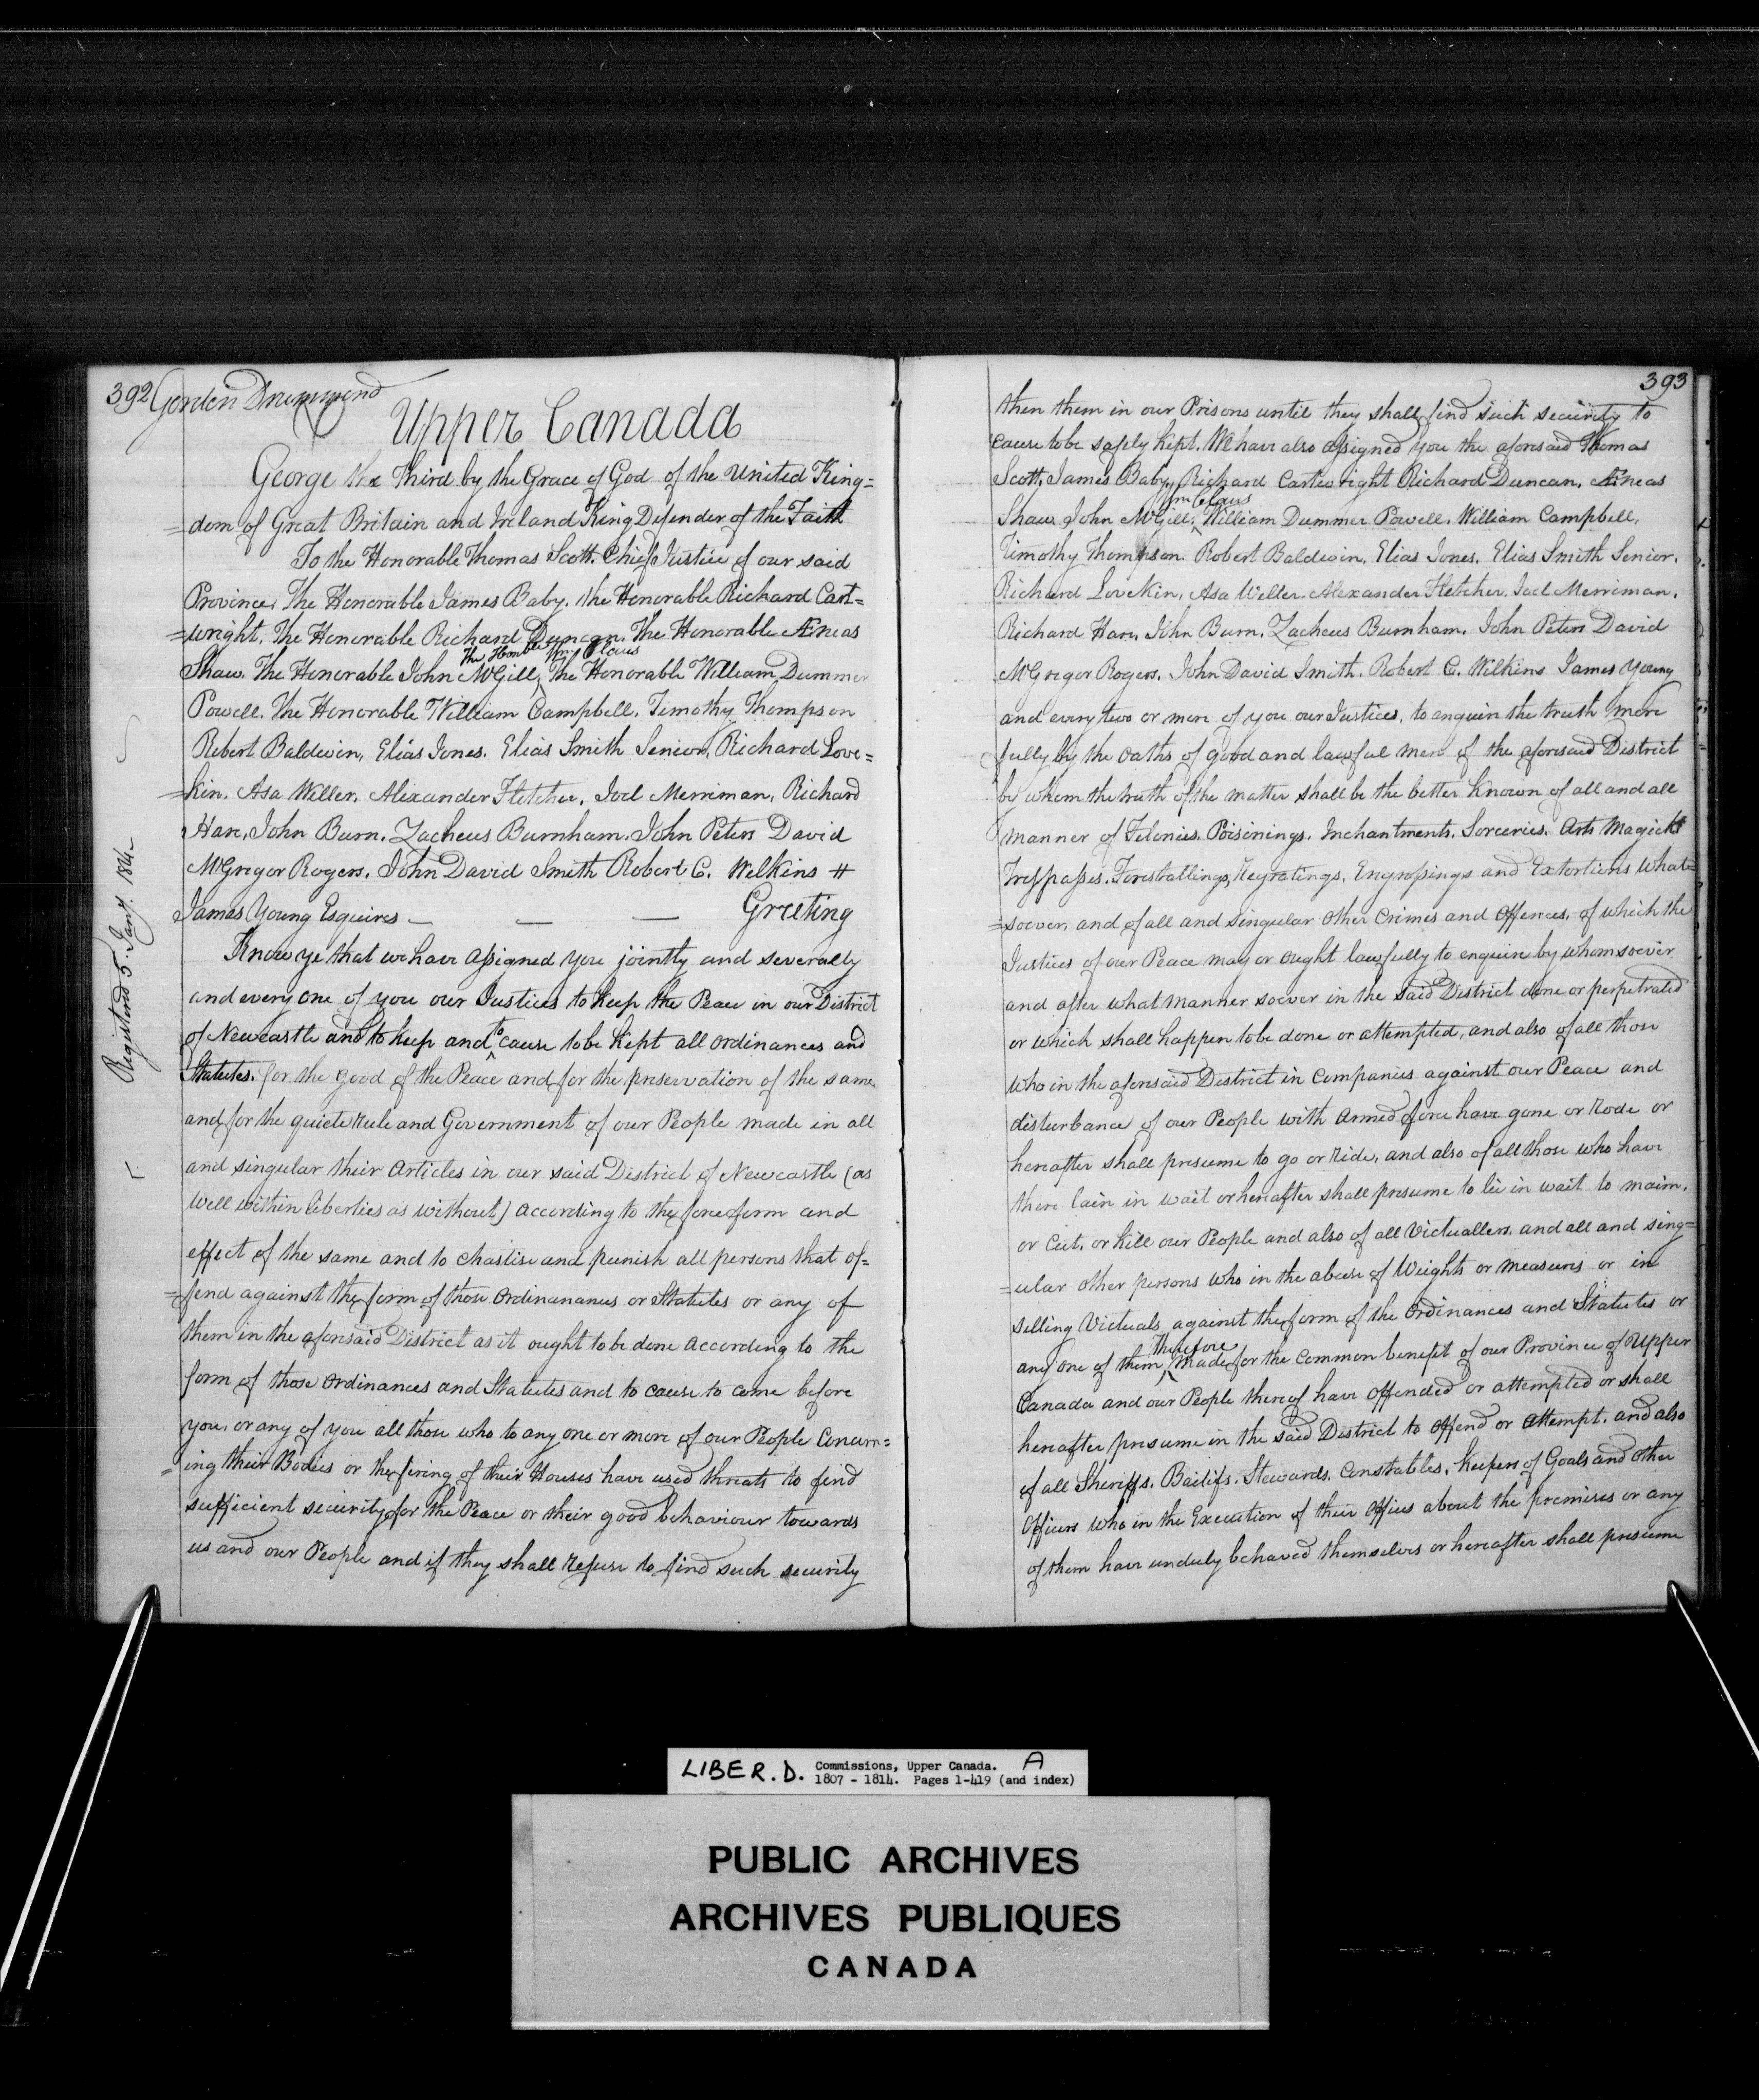 392 Gordon Drummond
Upper Canada
George the Third by the Grace of God of the United King=
=dom of Great Britain and Ireland King Defender of the Faith
To the Honorable Thomas Scott. Chief Justice of our said
Province, The Honorable James Baby. The Honorable Richard Cart=
=wright. The Honorable Richard Duncan. The Honorable Æneas
The Honble Wm Claus
Shaw. The Honorable John McGill, The Honorable William Dummer
Powell. The Honorable William Campbell. Timothy Thompson
Robert Baldwin, Elias Jones. Elias Smith Senior, Richard Love=
=kin. Asa Weller. Alexander Fletcher, Joel Merriman, Richard
Hare, John Burn. Zacheus Burnham. John Peters David
McGregor Rogers. John David Smith Robert C. Wilkins #
James Young Esquires — — — Greeting
Know ye that we have assigned you jointly and severally
and every one of you our Justices to keep the Peace in our District
of Newcastle and to keep and to cause to be kept all ordinances and
Statutes. for the good of the Peace and for the preservation of the same
and for the quiete rule and Government of our People made in all
and singular their Articles in our said District of Newcastle (as
well within liberties as without) according to the force form and
effect of the same and to chastise and punish all persons that of=
=fend against the form of those Ordinanances or Statutes or any of
them in the aforesaid District as it ought to be done according to the
form of those Ordinances and Statutes and to cause to come before
you, or any of you all those who to any one or more of our People Concern=
=ing their Bodies or the firing of their Houses have used threats to find
sufficient security for the Peace or their good behaviour towards
us and our People and if they shall refuse to find such security
Registered 5. Jany. 1814.
393
then them in our Prisons until they shall find such security to
cause to be safely kept. We have also assigned you the aforesaid Thomas
Scott, James Baby, Richard Cartwright Richard Duncan, Æneas
Wm Claus
Shaw John McGill, William Dummer Powell. William Campbell,
Timothy Thompson. Robert Baldwin. Elias Jones. Elias Smith Senior.
Richard Lovekin, Asa Weller. Alexander Fletcher. Joel Merriman.
Richard Hare, John Burn. Zacheus Burnham. John Peters David
McGregor Rogers. John David Smith. Robert C. Wilkins James Young
and every two or more of you our Justices, to enquire the truth more
fully by the oaths of good and lawful men of the aforesaid District
by whom the truth of the matter shall be the better known of all and all
manner of Felonies. Poisonings. Inchantments. Sorceries. Arts Magick
Tresspasses. Forestallings, Regratings, Engrossings and Extortions what=
=soever, and of all and singular other Crimes and Offences, of which the
Justices of our Peace may or ought lawfully to enquire by whomsoever
and after what manner soever in the said District done or perpetrated
or which shall happen to be done or attempted, and also of all those
who in the aforesaid District in Companies against our Peace and
disturbance of our People with Armed force have gone or rode or
hereafter shall presume to go or ride, and also of all those who have
there lain in wait or hereafter shall presume to lie in wait to maim.
or Cut, or kill our People and also of all Victuallers. and all and sing=
=ular other persons who in the abuse of Weights or measures or in
selling Victuals against the form of the Ordinances and Statutes or
therefore
any one of them, made for the Common benefit of our Province of Upper
Canada and our People thereof have offended or attempted or shall
hereafter presume in the said District to offend or attempt. and also
of all Sheriffs. Bailifs. Stewards, Constables, keepers of Goals and other
Officers who in the Execution of their Offices about the premises or any
of them have unduly behaved themselves or hereafter shall presume
LIBER. D. Commissions, Upper Canada. A
1807 - 1814. Pages 1-419 (and index)
PUBLIC ARCHIVES
ARCHIVES PUBLIQUES
CANADA